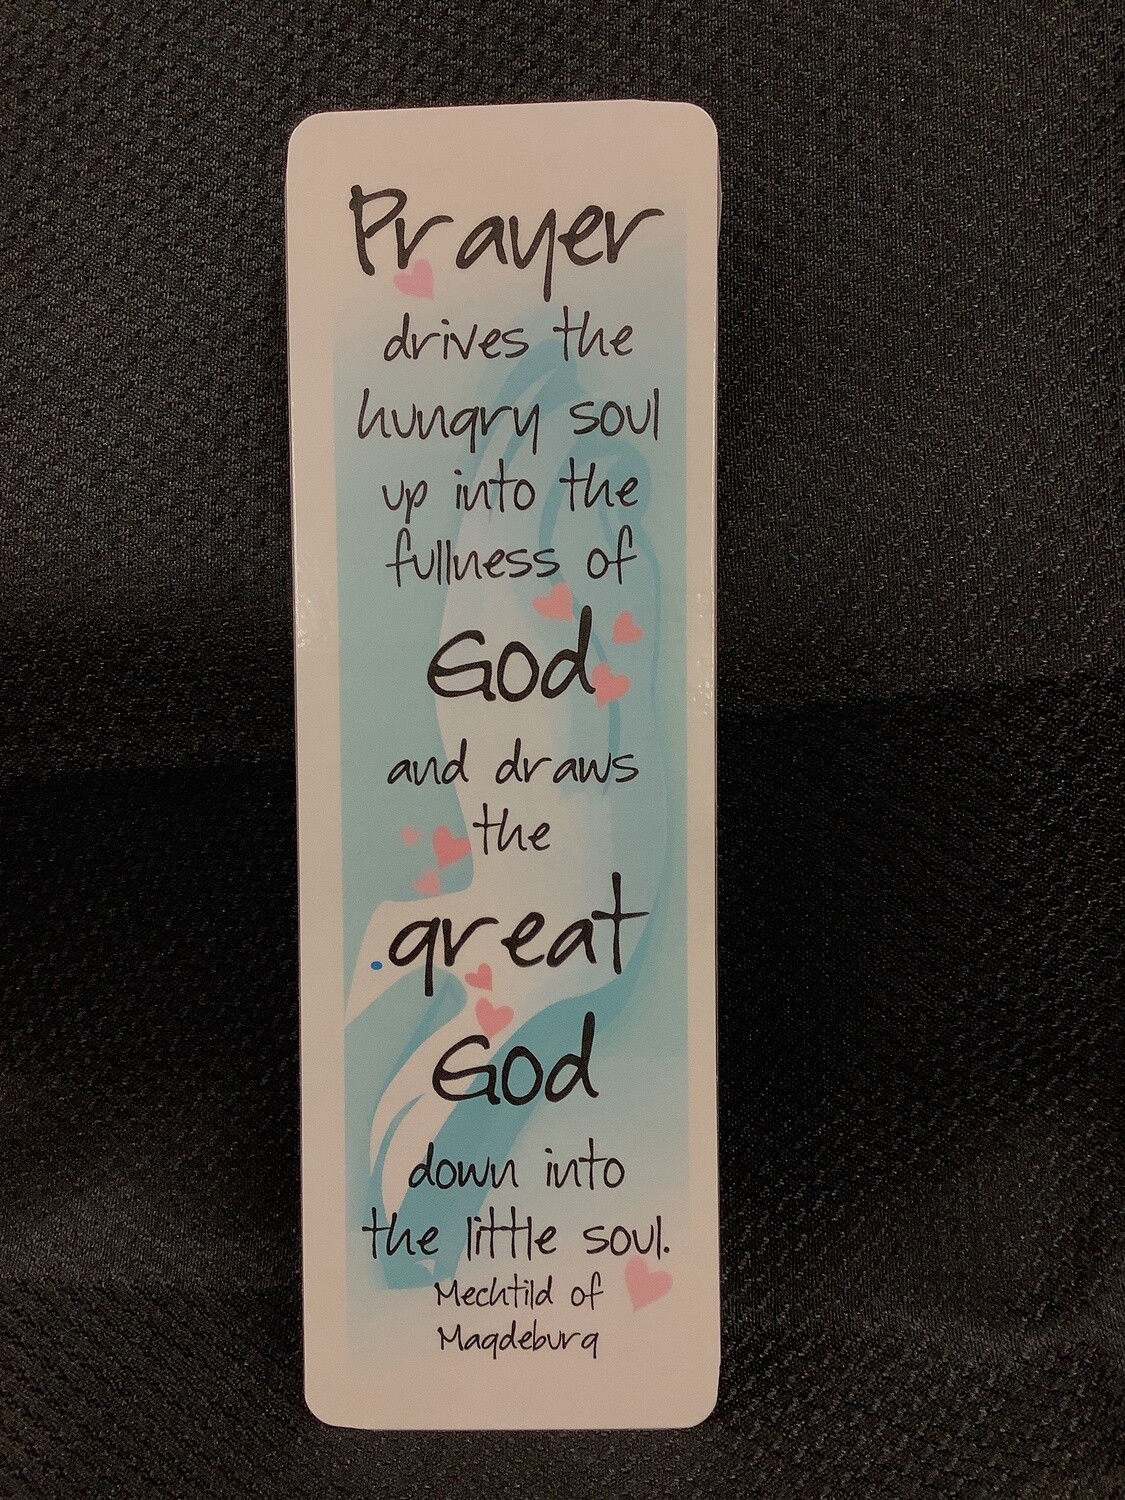 Prayer
drives the
hungry soul
up into the
fullness of
God
and draws
the
great
God
down into
the little soul.
Mechtild of
Magdeburg